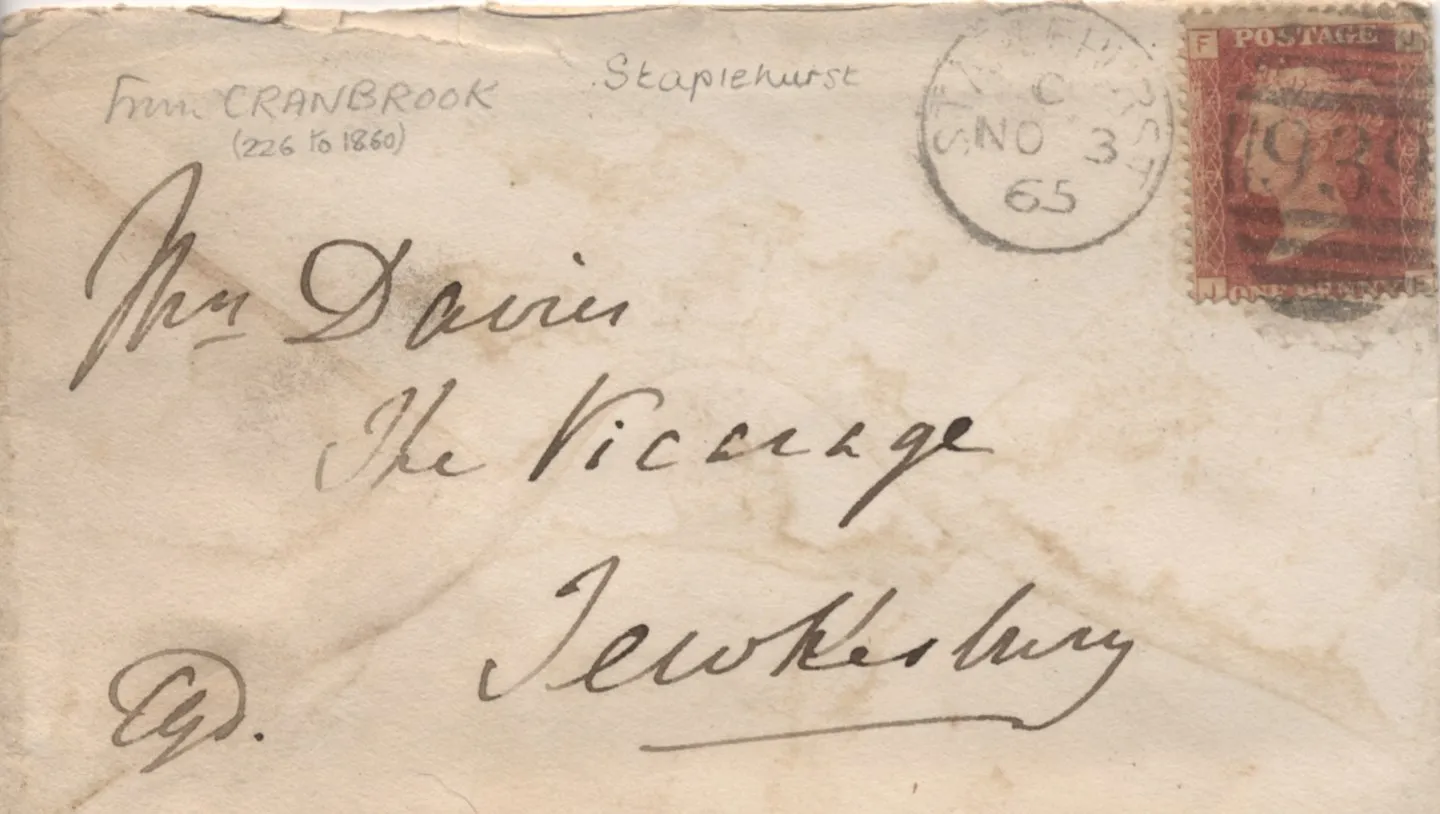 From CRANBROOK
(226 to 1860)
Staplehurst
STAPLEHURST
C
NO 3
65
F J
POSTAGE
939
J F
ONE PENNY
Mrs Davies
The Vicarage
Tewkesbury